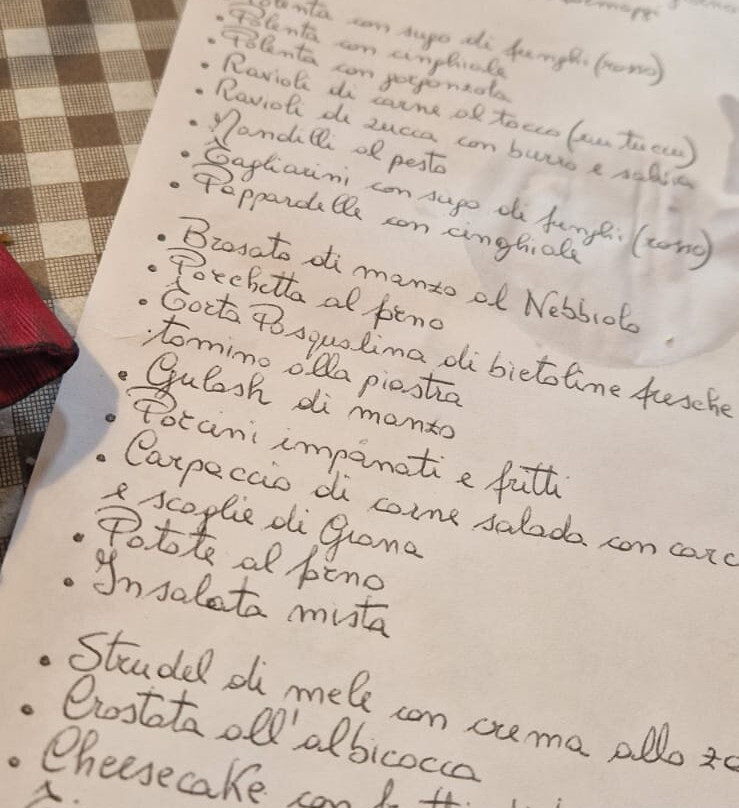 • Polenta con sugo di funghi (rosso)
• Polenta con cinghiale
• Polenta con gorgonzola
• Ravioli di carne al tocco (au tuccu)
• Ravioli di zucca con burro e salvia
• Mandilli al pesto
• Tagliarini con sugo di funghi (rosso)
• Pappardelle con cinghiale
• Brasato di manzo al Nebbiolo
• Porchetta al forno
• Torta Pasqualina di bietoline fresche
• tomino alla piastra
• Gulash di manzo
• Porcini impanati e fritti
• Carpaccio di carne salada con carc
e scaglie di Grana
• Patate al forno
• Insalata mista
• Strudel di mele con crema allo za
• Crostata all'albicocca
• Cheesecake con